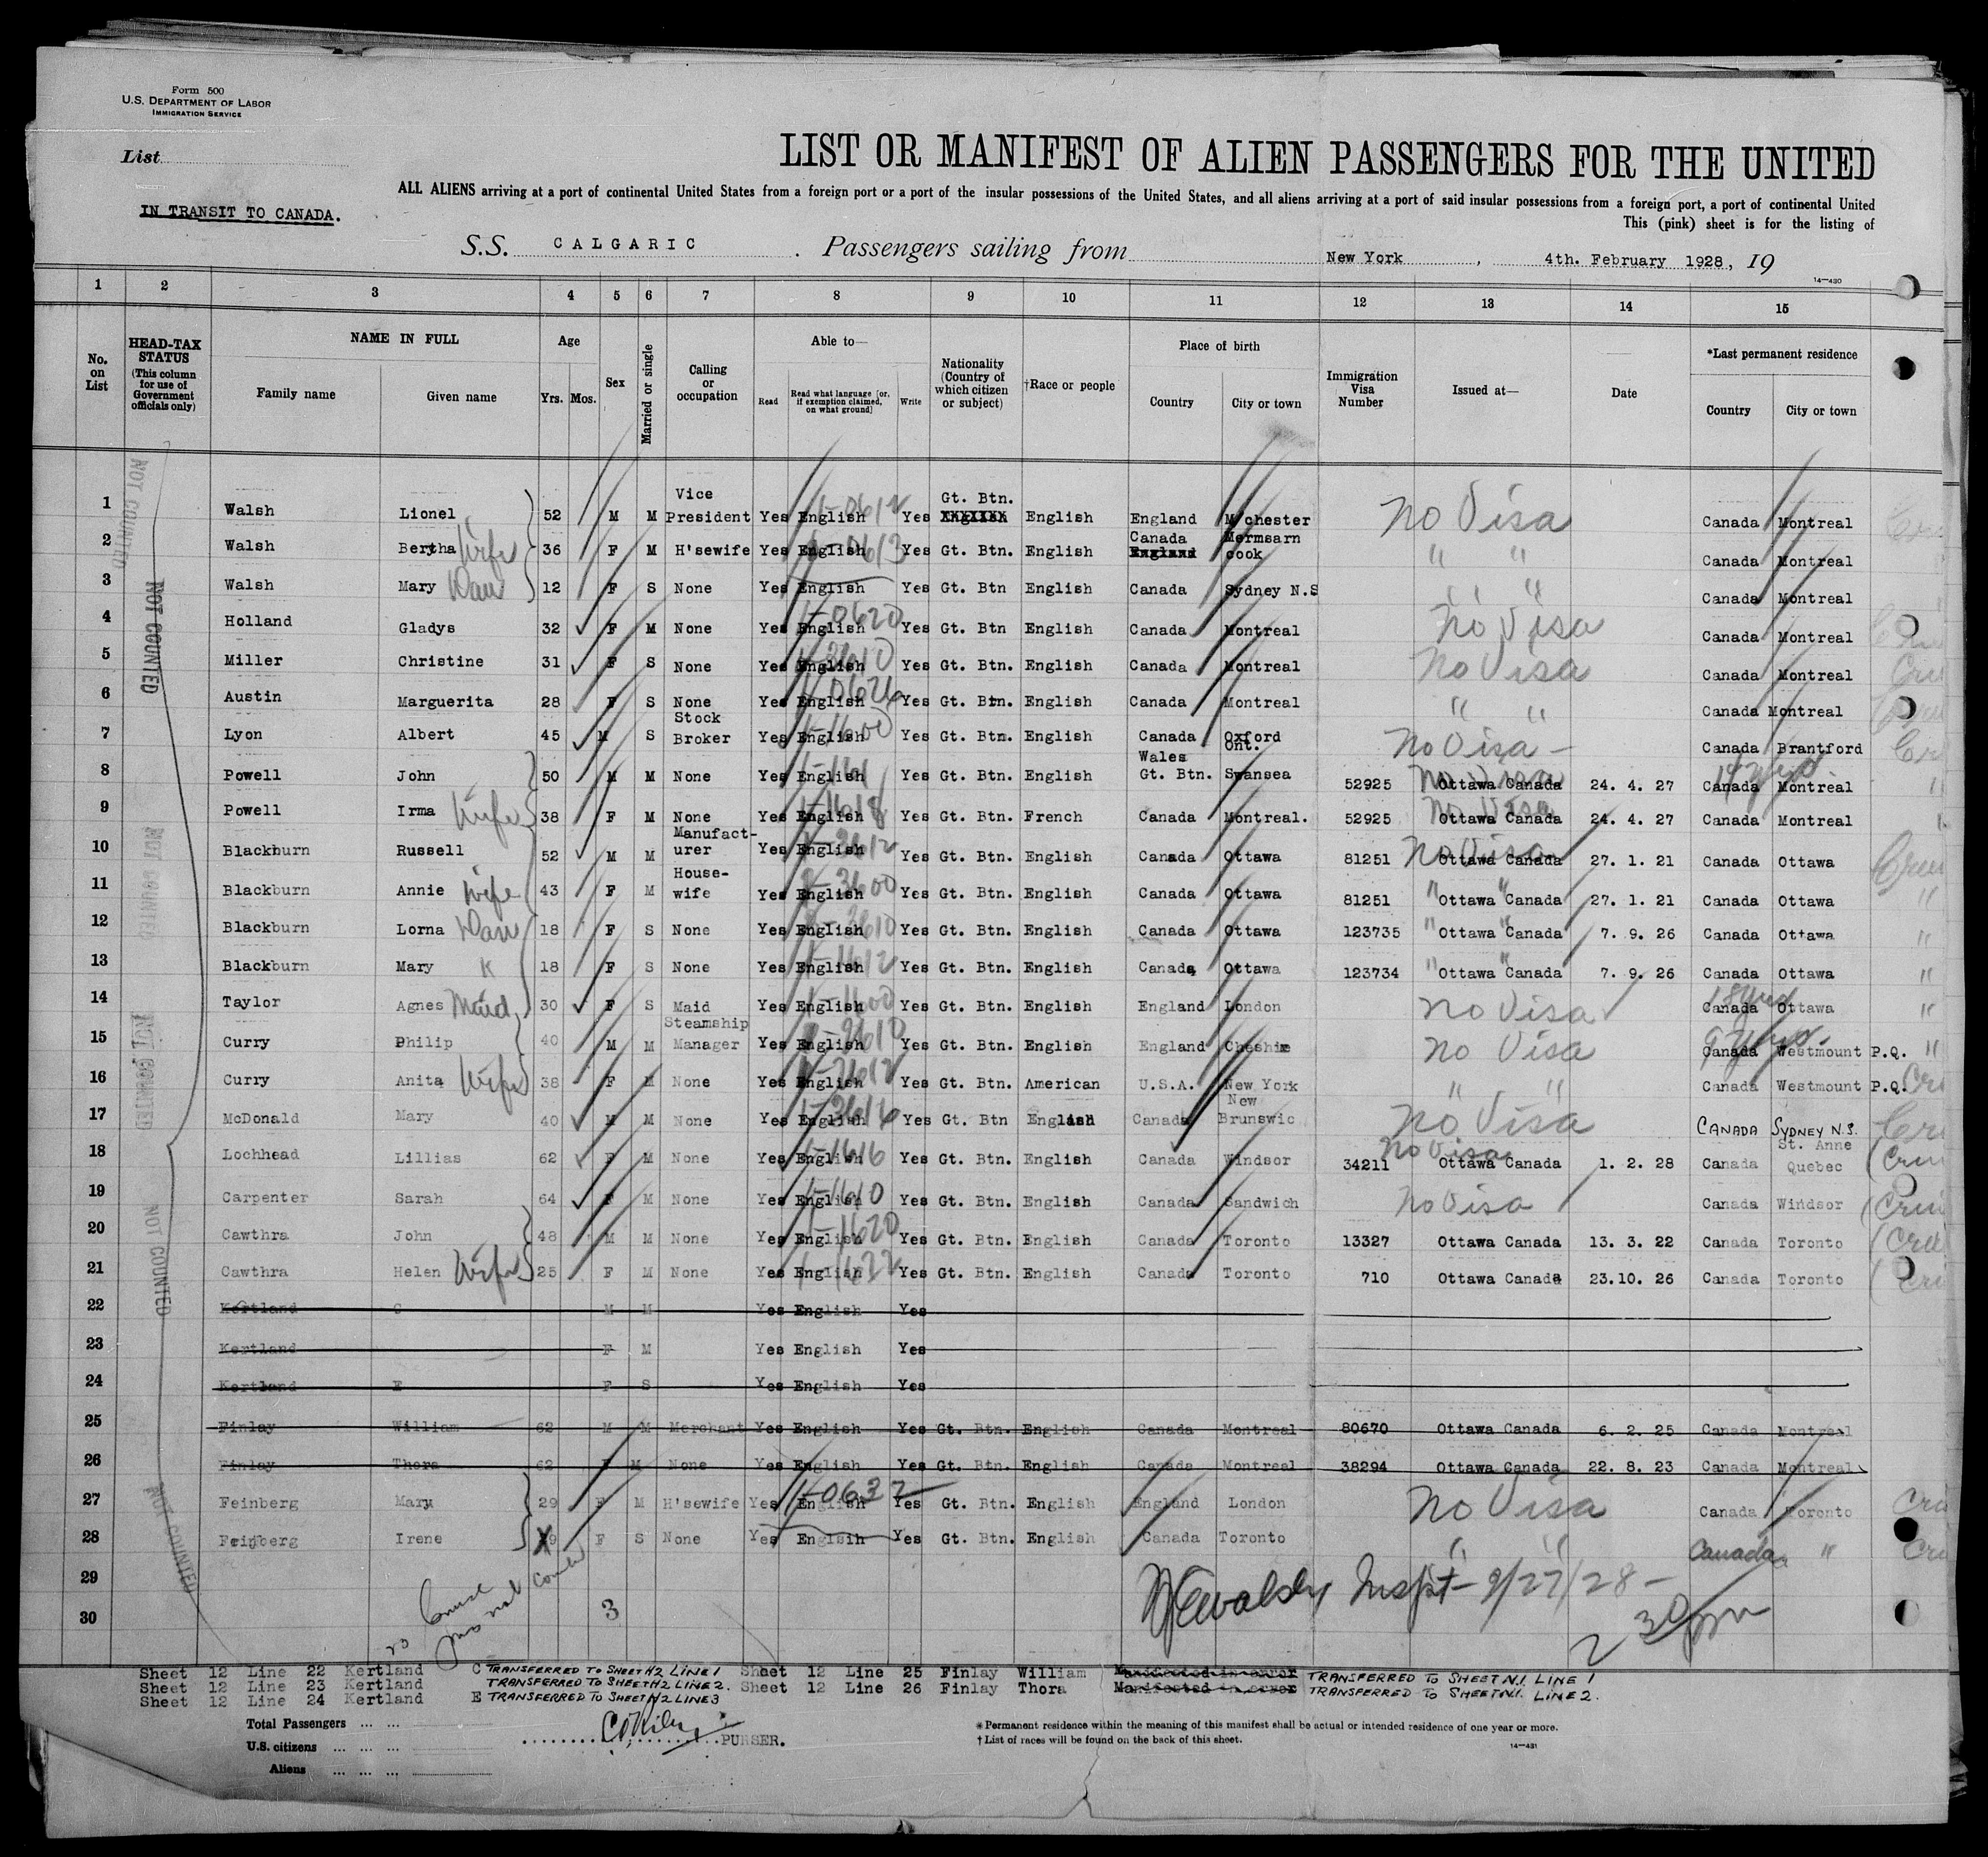 Form 500
U.S. DEPARTMENT OF LABOR
IMMIGRATION SERVICE
List
IN TRANSIT TO CANADA.
LIST OR MANIFEST OF ALIEN PASSENGERS FOR THE UNITED
ALL ALIENS arriving at a port of continental United States from a foreign port or a port of the insular possessions of the United States, and all aliens arriving at a port of said insular possessions from a foreign port, a port of continental United
This (pink) sheet is for the listing of
S.S. CALGARIC. Passengers sailing from New York, 4th. February 1928, 19
14—430
1 2 3 4 5 6 7 8 9 10 11 12 13 14 15
No. on List
HEAD-TAX STATUS (This column for use of Government officials only)
NAME IN FULL
Family name Given name
Age
Yrs. Mos.
Sex
Married or single
Calling or occupation
Able to—
Read Read what language [or, if exemption claimed, on what ground] Write
Nationality (Country of which citizen or subject)
†Race or people
Place of birth
Country City or town
Immigration Visa Number
Issued at—
Date
*Last permanent residence
Country City or town
1 Walsh Lionel 52 M M Vice President Yes English Yes Gt. Btn. English England M'chester No Visa Canada Montreal
2 Walsh Bertha Wife 36 F M H'sewife Yes English Yes Gt. Btn. English Canada England Mermsarn cook " " Canada Montreal
3 Walsh Mary Dau 12 F S None Yes English Yes Gt. Btn English Canada Sydney N.S " " Canada Montreal
4 Holland Gladys 32 F M None Yes English Yes Gt. Btn English Canada Montreal No Visa Canada Montreal
5 Miller Christine 31 F S None Yes English Yes Gt. Btn. English Canada Montreal No Visa Canada Montreal
6 Austin Marguerita 28 F S None Yes English Yes Gt. Btn. English Canada Montreal " " Canada Montreal
7 Lyon Albert 45 M S Stock Broker Yes English Yes Gt. Btn. English Canada Oxford Ont. No Visa — Canada Brantford
8 Powell John 50 M M None Yes English Yes Gt. Btn. English Wales Gt. Btn. Swansea 52925 No Visa Ottawa Canada 24. 4. 27 Canada Montreal
9 Powell Irma Wife 38 F M None Yes English Yes Gt. Btn. French Canada Montreal. 52925 No Visa Ottawa Canada 24. 4. 27 Canada Montreal
10 Blackburn Russell 52 M M Manufact-urer Yes English Yes Gt. Btn. English Canada Ottawa 81251 No Visa Ottawa Canada 27. 1. 21 Canada Ottawa
11 Blackburn Annie Wife 43 F M House-wife Yes English Yes Gt. Btn. English Canada Ottawa 81251 " Ottawa Canada 27. 1. 21 Canada Ottawa
12 Blackburn Lorna Dau 18 F S None Yes English Yes Gt. Btn. English Canada Ottawa 123735 " Ottawa Canada 7. 9. 26 Canada Ottawa
13 Blackburn Mary 18 F S None Yes English Yes Gt. Btn. English Canada Ottawa 123734 " Ottawa Canada 7. 9. 26 Canada Ottawa
14 Taylor Agnes Maid 30 F S Maid Yes English Yes Gt. Btn. English England London No Visa Canada Ottawa
15 Curry Philip 40 M M Steamship Manager Yes English Yes Gt. Btn. English England Cheshire No Visa Canada Westmount P.Q.
16 Curry Anita Wife 38 F M None Yes English Yes Gt. Btn. American U.S.A. New York " " Canada Westmount P.Q.
17 McDonald Mary 40 M M None Yes English Yes Gt. Btn English Canada New Brunswic No Visa CANADA SYDNEY N.S.
18 Lochhead Lillias 62 F M None Yes English Yes Gt. Btn. English Canada Windsor 34211 No Visa Ottawa Canada 1. 2. 28 Canada St. Anne Quebec
19 Carpenter Sarah 64 F M None Yes English Yes Gt. Btn. English Canada Sandwich No Visa Canada Windsor
20 Cawthra John 48 M M None Yes English Yes Gt. Btn. English Canada Toronto 13327 Ottawa Canada 13. 3. 22 Canada Toronto
21 Cawthra Helen Wife 25 F M None Yes English Yes Gt. Btn. English Canada Toronto 710 Ottawa Canada 23.10. 26 Canada Toronto
22 Kertland C M M Yes English Yes
23 Kertland F M Yes English Yes
24 Kertland E F S Yes English Yes
25 Finlay William 62 M M Merchant Yes English Yes Gt. Btn. English Canada Montreal 80670 Ottawa Canada 6. 2. 25 Canada Montreal
26 Finlay Thora 62 F M None Yes English Yes Gt. Btn. English Canada Montreal 38294 Ottawa Canada 22. 8. 23 Canada Montreal
27 Feinberg Mary 29 F M H'sewife Yes English Yes Gt. Btn. English England London No Visa Canada Toronto
28 Feinberg Irene 9 F S None Yes Englsih Yes Gt. Btn. English Canada Toronto " " Canada "
29
30
3
Inspt — 2/27/28 —
2 30 pm
NOT COUNTED
NOT COUNTED
NOT COUNTED
NOT COUNTED
NOT COUNTED
NOT COUNTED
Sheet 12 Line 22 Kertland C TRANSFERRED TO SHEET H2 LINE 1 Sheet 12 Line 25 Finlay William Manifested in error TRANSFERRED TO SHEET N.1. LINE 1
Sheet 12 Line 23 Kertland TRANSFERRED TO SHEET H2 LINE 2. Sheet 12 Line 26 Finlay Thora Manifested in error TRANSFERRED TO SHEET N.1. LINE 2.
Sheet 12 Line 24 Kertland E TRANSFERRED TO SHEET H2 LINE 3
Total Passengers
U.S. citizens
Aliens
PURSER.
*Permanent residence within the meaning of this manifest shall be actual or intended residence of one year or more.
†List of races will be found on the back of this sheet.
14—431